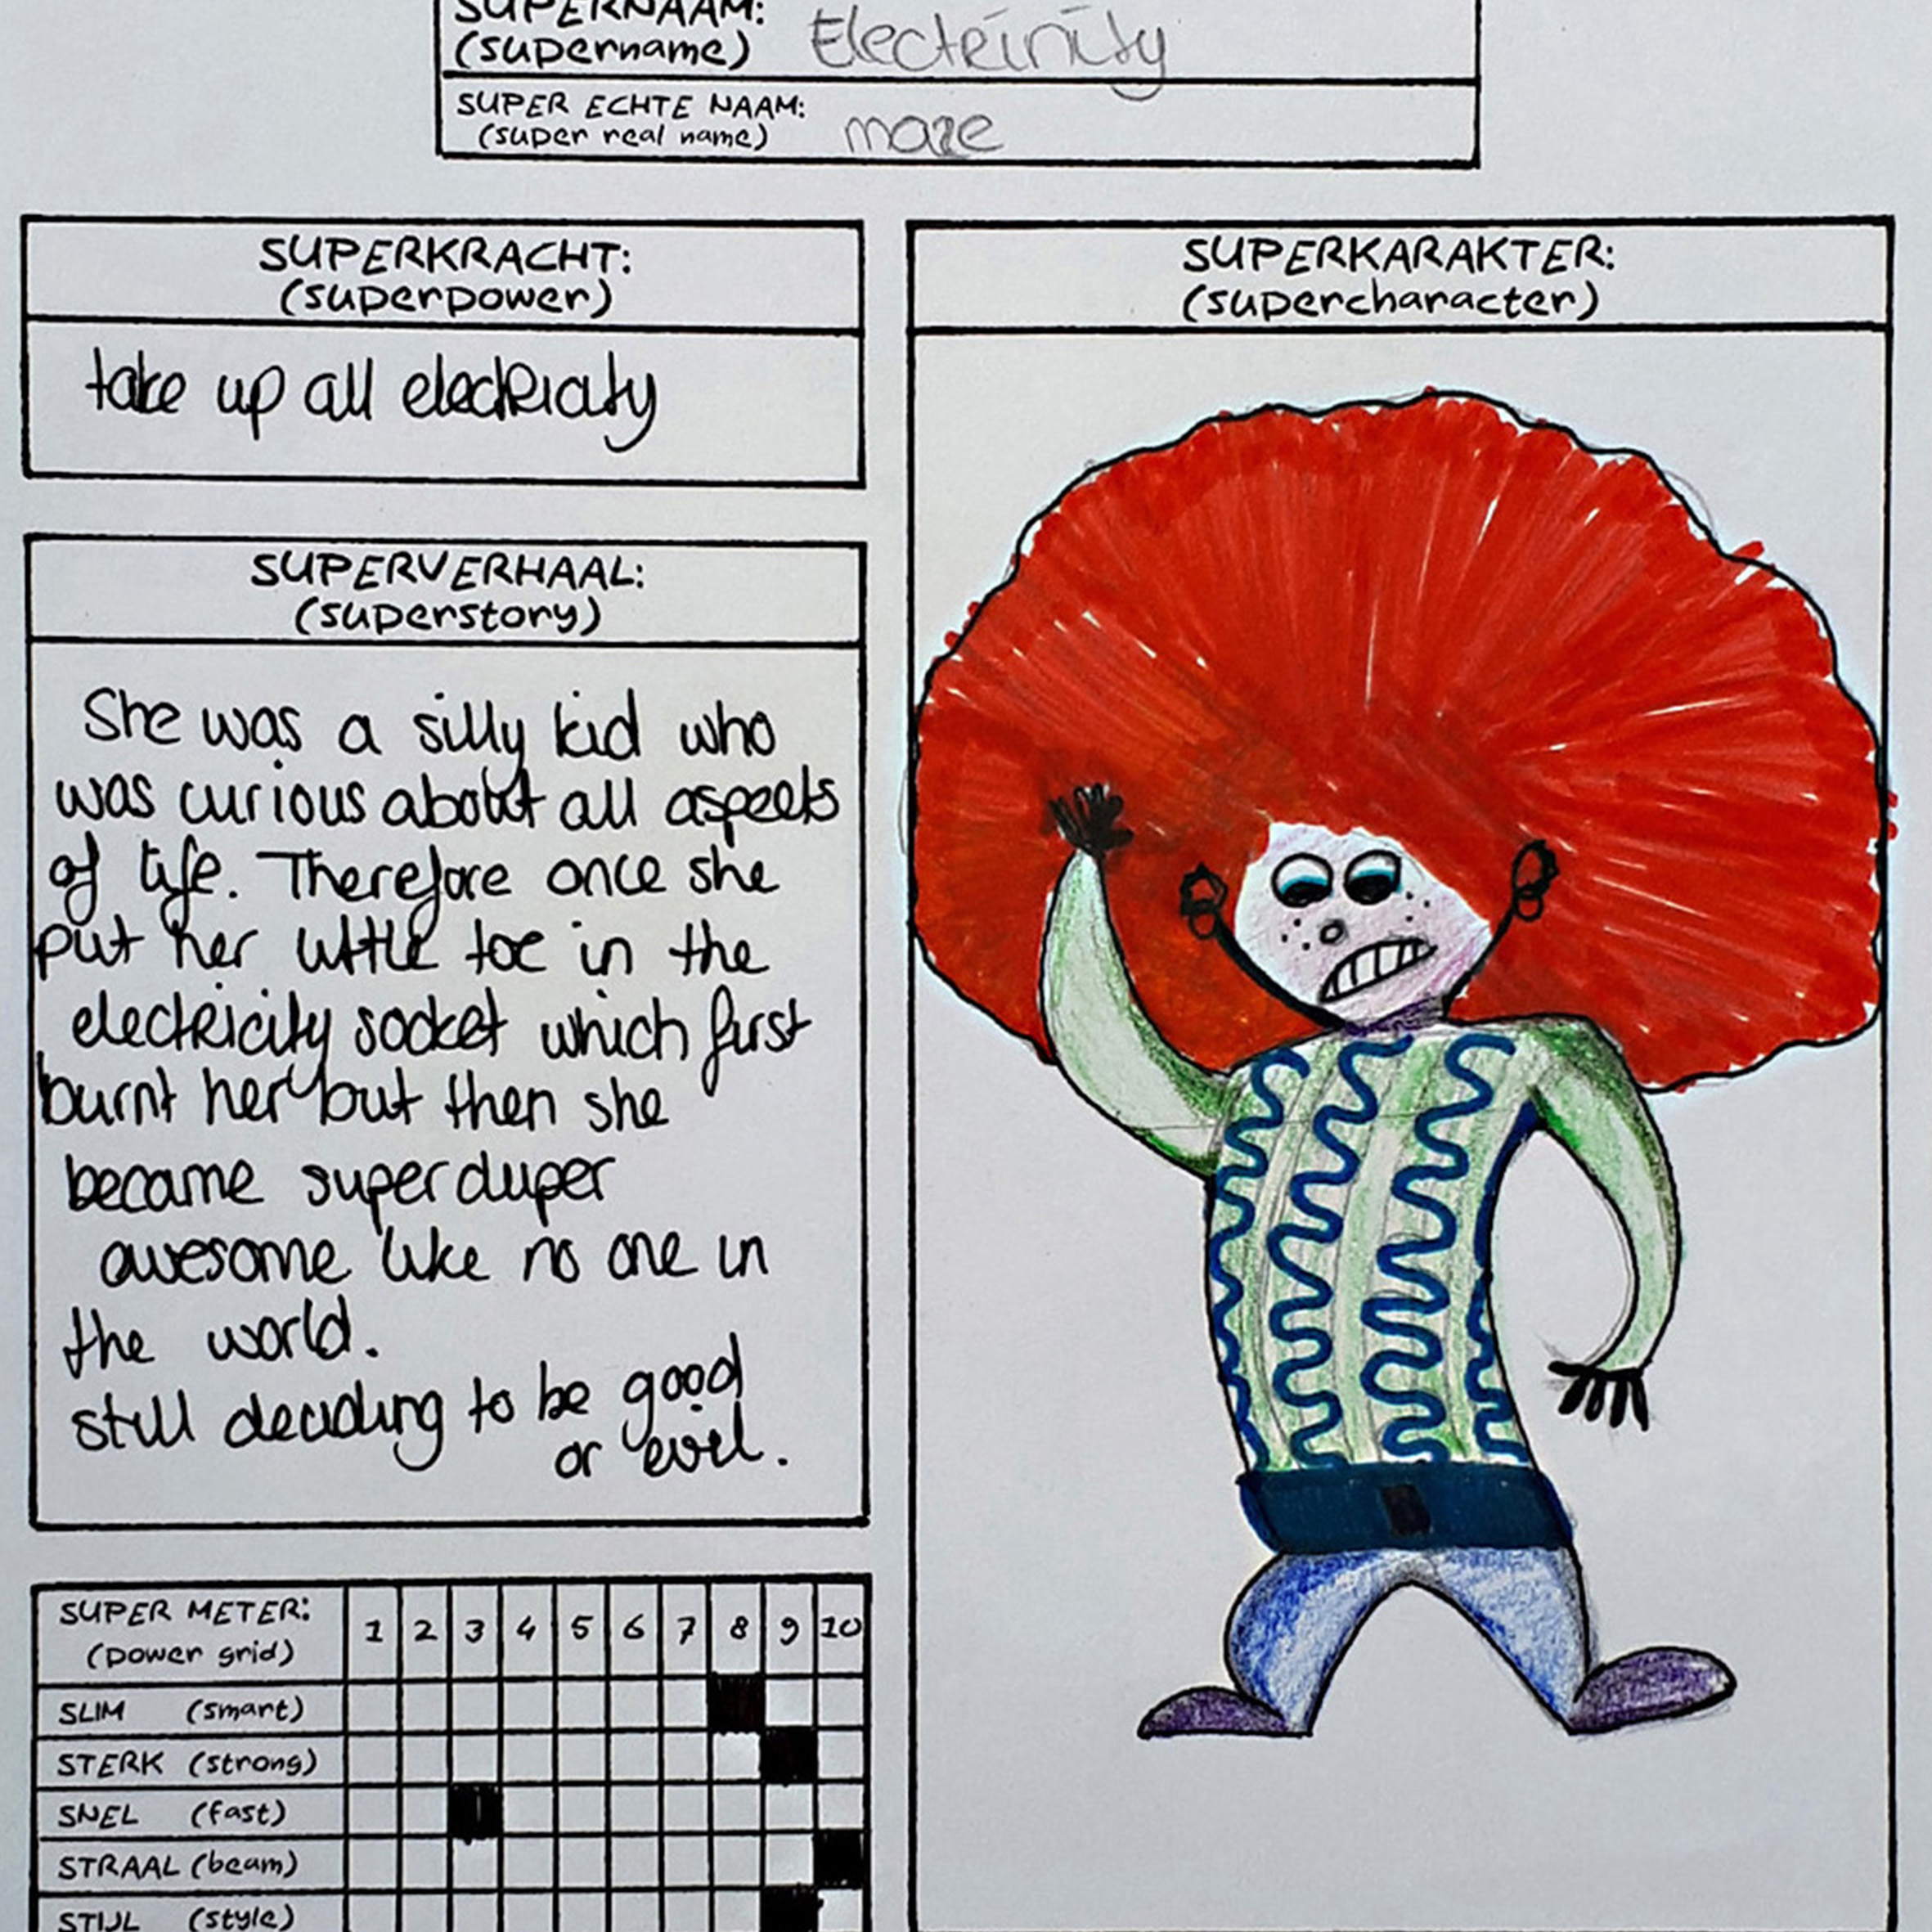 SUPERNAAM:
(supername) Electrinity
SUPER ECHTE NAAM:
(super real name) maze
SUPERKRACHT:
(superpower)
take up all electricity
SUPERVERHAAL:
(superstory)
She was a silly kid who
was curious about all aspects
of life. Therefore once she
put her little toe in the
electricity socket which first
burnt her but then she
became superduper
awesome like no one in
the world.
still deciding to be good
or evil.
SUPER METER: 1 2 3 4 5 6 7 8 9 10
(power grid)
SLIM (smart)
STERK (strong)
SNEL (fast)
STRAAL (beam)
STIJL (style)
SUPERKARAKTER:
(supercharacter)